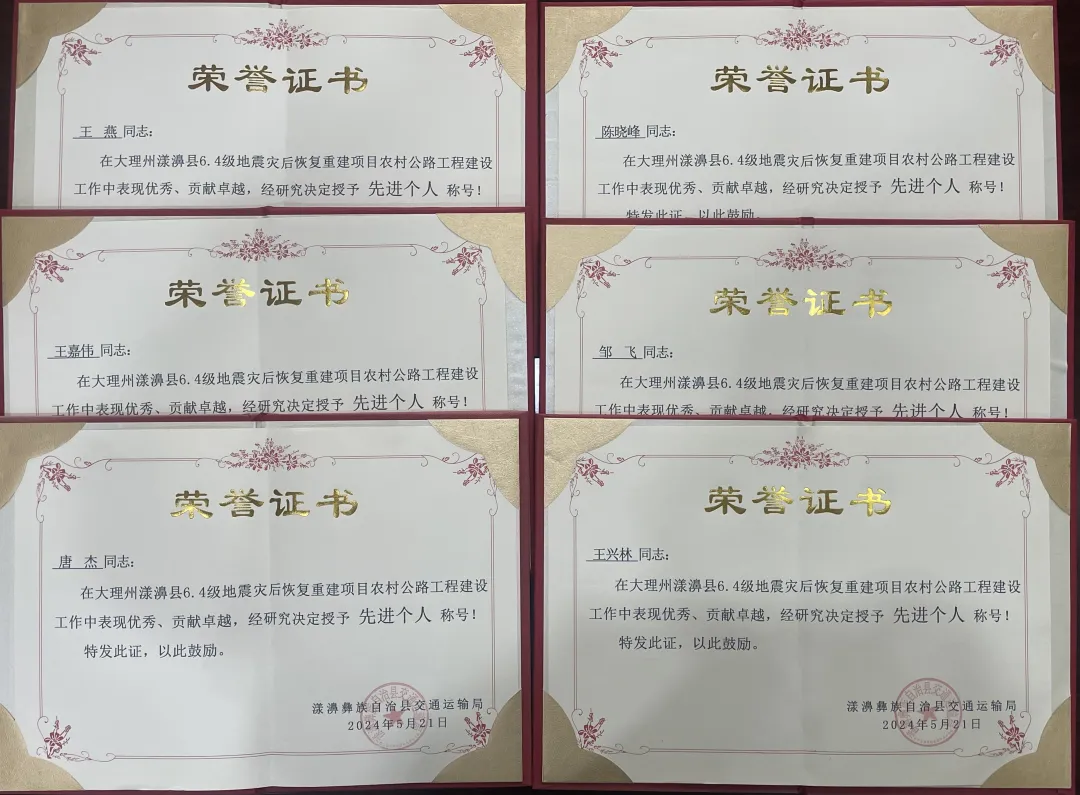 荣誉证书
王 燕 同志：
在大理州漾濞县6.4级地震灾后恢复重建项目农村公路工程建设
工作中表现优秀、贡献卓越，经研究决定授予 先进个人 称号！
荣誉证书
陈晓峰 同志：
在大理州漾濞县6.4级地震灾后恢复重建项目农村公路工程建设
工作中表现优秀、贡献卓越，经研究决定授予 先进个人 称号！
特发此证，以此鼓励。
荣誉证书
王嘉伟 同志：
在大理州漾濞县6.4级地震灾后恢复重建项目农村公路工程建设
工作中表现优秀、贡献卓越，经研究决定授予 先进个人 称号！
荣誉证书
邹 飞 同志：
在大理州漾濞县6.4级地震灾后恢复重建项目农村公路工程建设
工作中表现优秀、贡献卓越，经研究决定授予 先进个人 称号！
荣誉证书
唐 杰 同志：
在大理州漾濞县6.4级地震灾后恢复重建项目农村公路工程建设
工作中表现优秀、贡献卓越，经研究决定授予 先进个人 称号！
特发此证，以此鼓励。
漾濞彝族自治县交通运输局
2024年5月21日
荣誉证书
王兴林 同志：
在大理州漾濞县6.4级地震灾后恢复重建项目农村公路工程建设
工作中表现优秀、贡献卓越，经研究决定授予 先进个人 称号！
特发此证，以此鼓励。
漾濞彝族自治县交通运输局
2024年5月21日